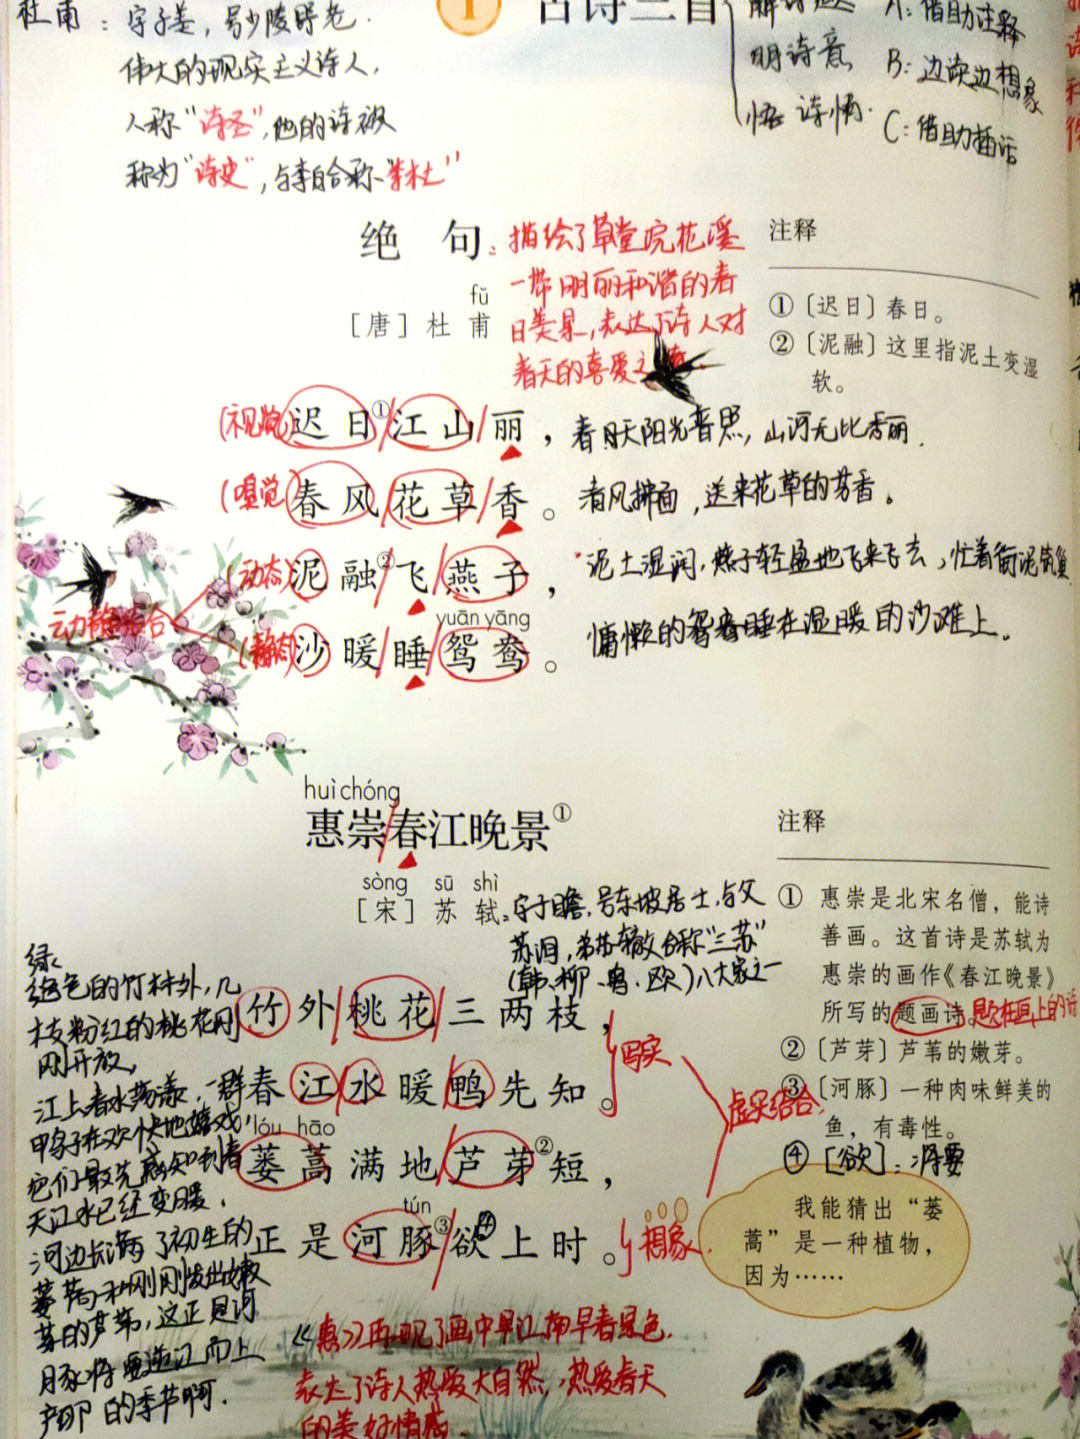 杜甫：字子美，号少陵野老.
伟大的现实主义诗人，
人称“诗圣”，他的诗被
称为“诗史”，与李白合称“李杜”
1 古诗三首
明诗意
悟诗情.
A：借助注释
B：边读边想象
C：借助插话
绝句：描绘了草堂浣花溪
一带明丽和谐的春
日美景，表达了诗人对
春天的喜爱之
fǔ
［唐］杜甫
注释
①〔迟日〕春日。
②〔泥融〕这里指泥土变湿
软。
(视觉)迟日①江山丽，春日天阳光普照，山河无比秀丽.
(嗅觉)春风花草香。春风拂面，送来花草的芳香。
(动态)泥融②飞燕子，泥土湿润，燕子轻盈地飞来飞去，忙着衔泥筑巢
动静结合
yuān yāng
(静态)沙暖睡鸳鸯。慵懒的鸳鸯睡在温暖的沙滩上。
huì chóng
惠崇春江晚景①
sòng sū shì
［宋］苏轼：字子瞻，号东坡居士，与父
苏洵，弟苏辙合称“三苏”
(韩、柳、曾、欧)八大家之一
注释
① 惠崇是北宋名僧，能诗
善画。这首诗是苏轼为
惠崇的画作《春江晚景》
所写的题画诗。题在画上的诗
②〔芦芽〕芦苇的嫩芽。
③〔河豚〕一种肉味鲜美的
鱼，有毒性。
④［欲］：将要
绿
色的竹林外，几
枝粉红的桃花刚
刚开放，
江上春水荡漾，一群
鸭子在欢快地嬉戏，
它们最先感知到春
天江水已经变暖.
河边长满了初生的
蒌蒿和刚刚发出嫩
芽的芦苇，这正是河
豚将要逆江而上
产卵的季节啊.
竹外桃花三两枝，
春江水暖鸭先知。
写实
lóu hāo
蒌蒿满地芦芽②短，
tún
正是河豚③欲④上时。
想象.
虚实结合.
我能猜出“蒌
蒿”是一种植物，
因为……
《惠》再现了画中早江南早春景色.
表达了诗人热爱大自然，热爱春天
的美好情感.